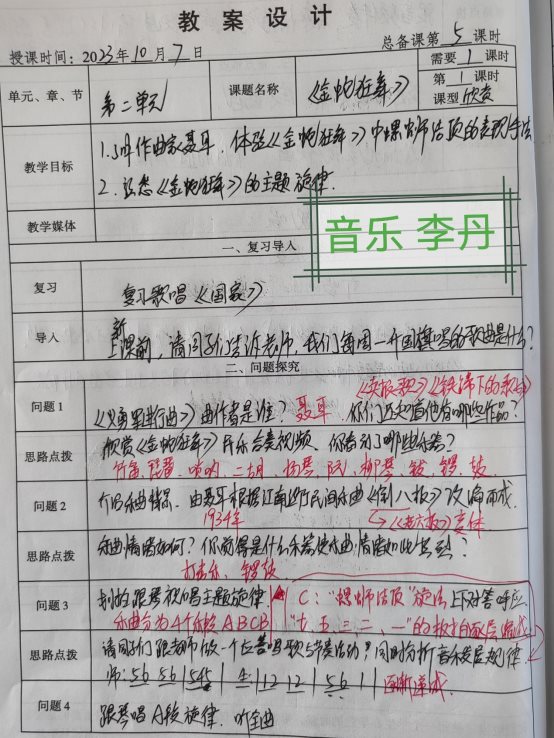 教案设计
授课时间：2023年10月7日
总备课第5课时
单元、章、节
第二单元
课题名称
《金蛇狂舞》
需要1课时
第1课时
课型欣赏
教学目标
1.了解作曲家聂耳，体验《金蛇狂舞》中螺蛳结顶的表现手法
2.熟悉《金蛇狂舞》的主题旋律.
教学媒体
音乐 李丹
一、复习导入
复习
复习歌唱《国家》
导入
新
上课前，请同学们告诉老师，我们每周一升国旗唱的歌曲是什么？
二、问题探究
《卖报歌》《铁蹄下的歌女》
问题1
《义勇军进行曲》曲作者是谁？聂耳.你们还知道他有哪些作品？
思路点拨
欣赏《金蛇狂舞》民乐合奏视频，你看到了哪些乐器？
竹笛、琵琶、唢呐、二胡、扬琴、阮、柳琴、钹、锣、鼓
问题2
介绍乐曲情景.由聂耳根据江南地区民间乐曲《倒八板》改编而成.
1934年
《老六板》变体
思路点拨
乐曲情绪如何？你觉得是什么乐器使乐曲情绪如此热烈？
打击乐、锣鼓
问题3
划拍跟琴视唱主题旋律
C："螺蛳结顶"旋法 上下对答呼应
乐曲分为4个乐段ABCB
思路点拨
请同学们跟老师做一个应答唱歌与节奏活动？同时分析音乐发展规律
逐渐递减.
问题4
跟琴唱A段旋律.听全曲